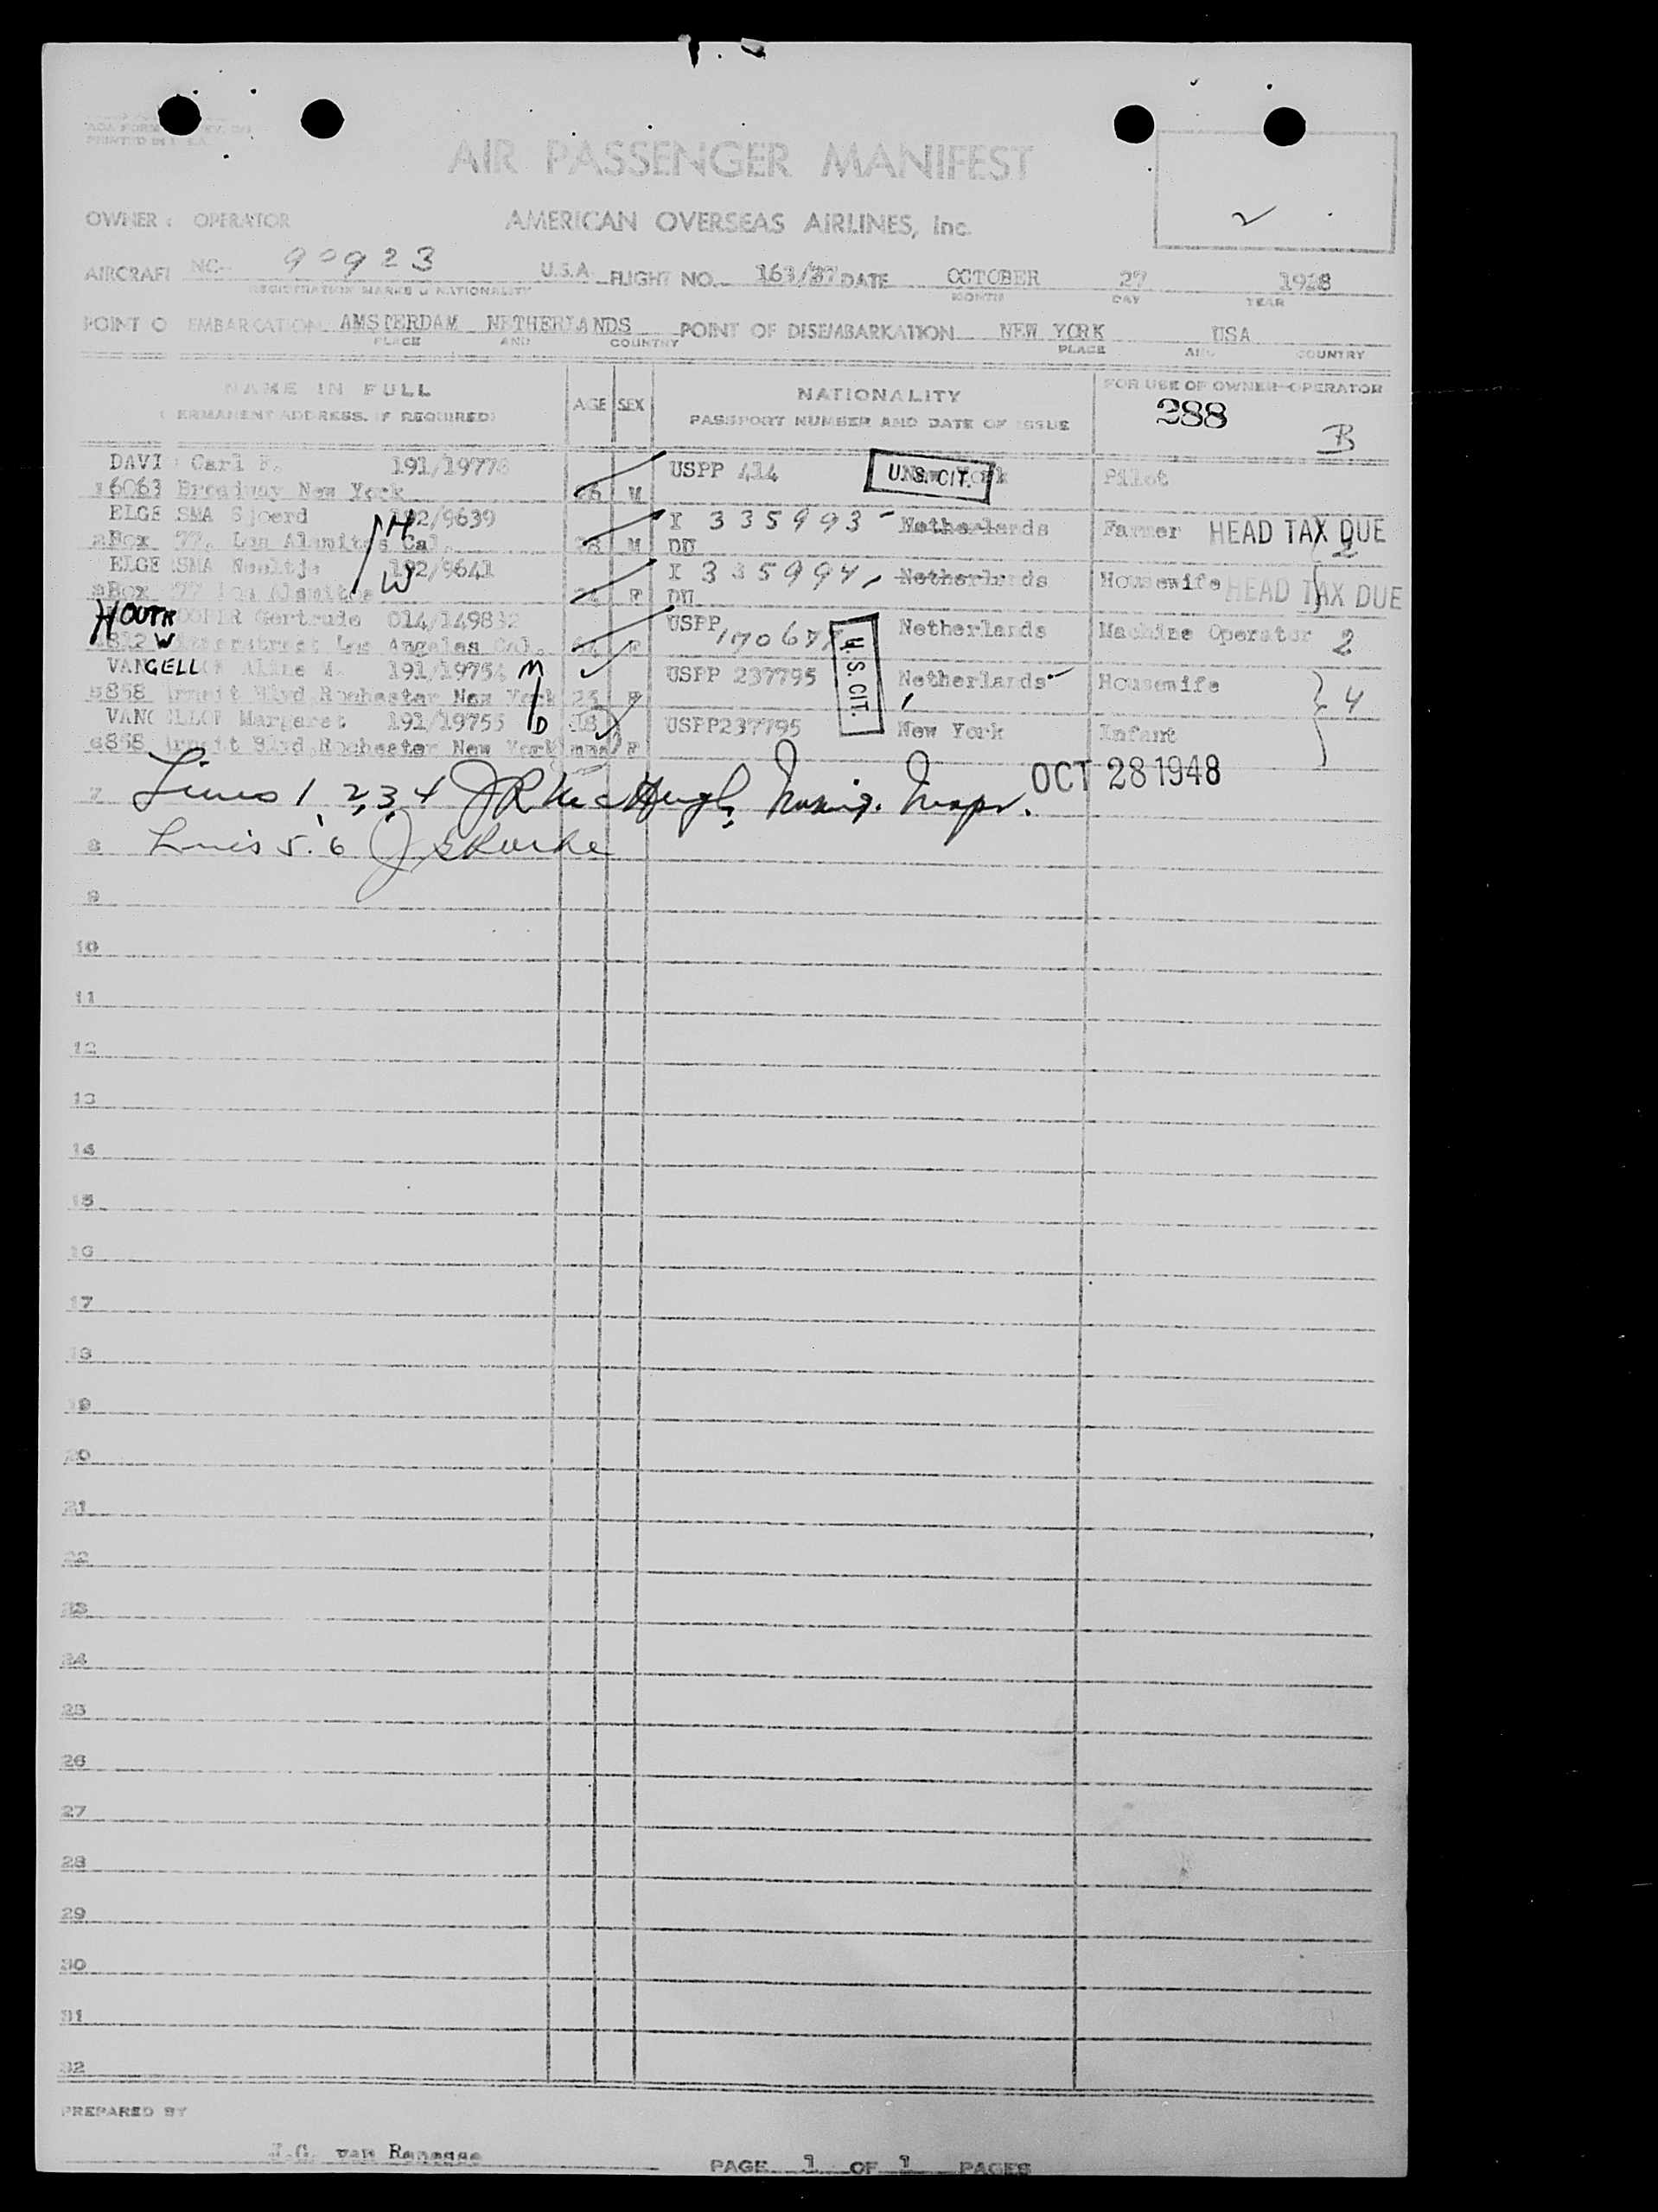 PRINTED IN U.S.A.
AIR PASSENGER MANIFEST
OWNER OPERATOR AMERICAN OVERSEAS AIRLINES, Inc.
AIRCRAFT NC- 90923 U.S.A. FLIGHT NO. 163/27 DATE OCTOBER 27 1948
REGISTRATION MARKS & NATIONALITY MONTH DAY YEAR
POINT O EMBARKATION AMSTERDAM NETHERLANDS POINT OF DISEMBARKATION NEW YORK USA
PLACE AND COUNTRY PLACE AND COUNTRY
NAME IN FULL AGE SEX NATIONALITY FOR USE OF OWNER-OPERATOR
ERMANENT ADDRESS. IF REQUIRED) PASSPORT NUMBER AND DATE OF ISSUE 288
B
DAVI Carl 191/19778 USPP 414 U.S. CIT. Pilot
1 6063 Broadway New York M
ELGE SMA Sjoerd 192/9639 H I 335993 Netherlands Farmer HEAD TAX DUE
2 Box 77, Los Alamitos Cal. M DU 2
ELGE SMA Neeltje 192/9641 I 335994 Netherlands Housewife HEAD TAX DUE
3 Box 77 Los Alamitos W F DU
HOUTK OOPER Gertrude 014/149832 USPP Netherlands Machine Operator 2
4 812 W Los Angeles Cal. F U.S. CIT.
VANGELLOF Aline M. 191/1975 M USPP 237795 Netherlands Housewife
5 858 Blvd Rochester New York 25 F 4
VANG ELLOF Margaret 191/19755 D 18 USPP237795 New York Infant
6 858 Blvd Rochester New York mns F
7 Lines 1, 2, 3, 4 J R McHugh, Immig. Inspr. OCT 28 1948
8 Lines 5. 6
9
10
11
12
13
14
15
16
17
18
19
20
21
22
23
24
25
26
27
28
29
30
31
32
PREPARED BY
J.G. van Renesse
PAGE 1 OF 1 PAGES